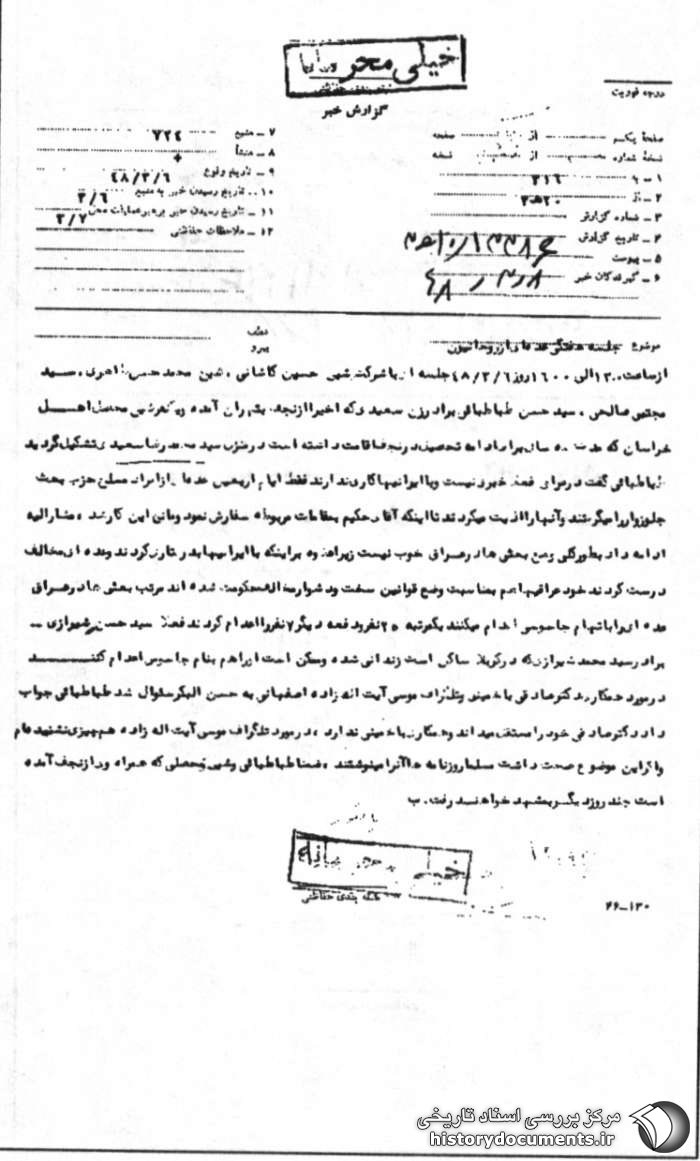 خیلی محرمانه
گزارش خبر
درجه فوریت
صفحه یکم از صفحه
نسخه شماره از نسخه
۱ - به ۳۱۶
۲ - از ۲۰ ﻫ ۳
۳ - شماره گزارش
۴ - تاریخ گزارش
۵ - پیوست
۶ - گیرندگان خبر
۴۸
۷ - منبع ۷۲۴
۸ - منشأ +
۹ - تاریخ وقوع ۴۸/۳/۶
۱۰ - تاریخ رسیدن خبر به منبع ۳/۶
۱۱ - تاریخ رسیدن خبر به رهبر عملیات ۳/۷
۱۲ - ملاحظات حفاظتی
موضوع جلسه هفتگی
عطف
پیرو
از ساعت ۱۳۰۰ الی ۱۶۰۰ روز ۴۸/۳/۶ جلسه ای با شرکت شیخ حسین کاشانی ، شیخ محمد حسن ، سید
مجتبی صالحی ، سید حسن طباطبائی برادر زن سعیدی که اخیرا از نجف بتهران آمده و یکنفر شیخ محصل اهل
خراسان که مدت ده سال برای ادامه تحصیل در نجف اقامت داشته است در منزل سید محمد رضا سعیدی تشکیل گردید
طباطبائی گفت در عراق فعلا خبری نیست و با ایرانیها کاری ندارند فقط ایام اربعین عده ای از افراد مسلح حزب بعث
جلو زوار را میگرفتند و آنها را اذیت میکردند تا اینکه آقای حکیم بمقامات مربوطه سفارش نمود و مانع این کار شد ، مشارالیه
ادامه داد بطور کلی وضع بعثی ها در عراق خوب نیست زیرا علاوه بر اینکه با ایرانیها بد رفتاری کردند و عده ای مخالف
درست کردند خود عراقیها هم بمناسبت وضع قوانین سخت و دشوار مخالف حکومت شده اند مرتب بعثی ها در عراق
عده ای را باتهام جاسوسی اعدام میکنند یکمرتبه ۲۰ نفر و دفعه دیگر ۷ نفر را اعدام کردند فعلا سید حسن شیرازی -
برادر سید محمد شیرازی که در کربلا ساکن است زندانی شده و ممکن است او را هم بنام جاسوس اعدام کنند
در مورد همکاری دکتر صادقی با خمینی و تلگراف موسی آیت اله زاده اصفهانی به حسن البکر سئوال شد طباطبائی جواب
داد دکتر صادقی خود را مستقل میداند و همکاری با خمینی ندارد ، در مورد تلگراف موسی آیت اله زاده هم چیزی نشنیده ام
و اگر این موضوع صحت داشت مسلما روزنامه ها آنرا مینوشتند ، ضمنا طباطبائی و شیخ محصلی که همراه وی از نجف آمده
است چند روز دیگر بمشهد خواهند رفت. ب
خیلی محرمانه
طبقه بندی حفاظتی
۴۶-۱۳۰
مرکز بررسی اسناد تاریخی
historydocuments.ir